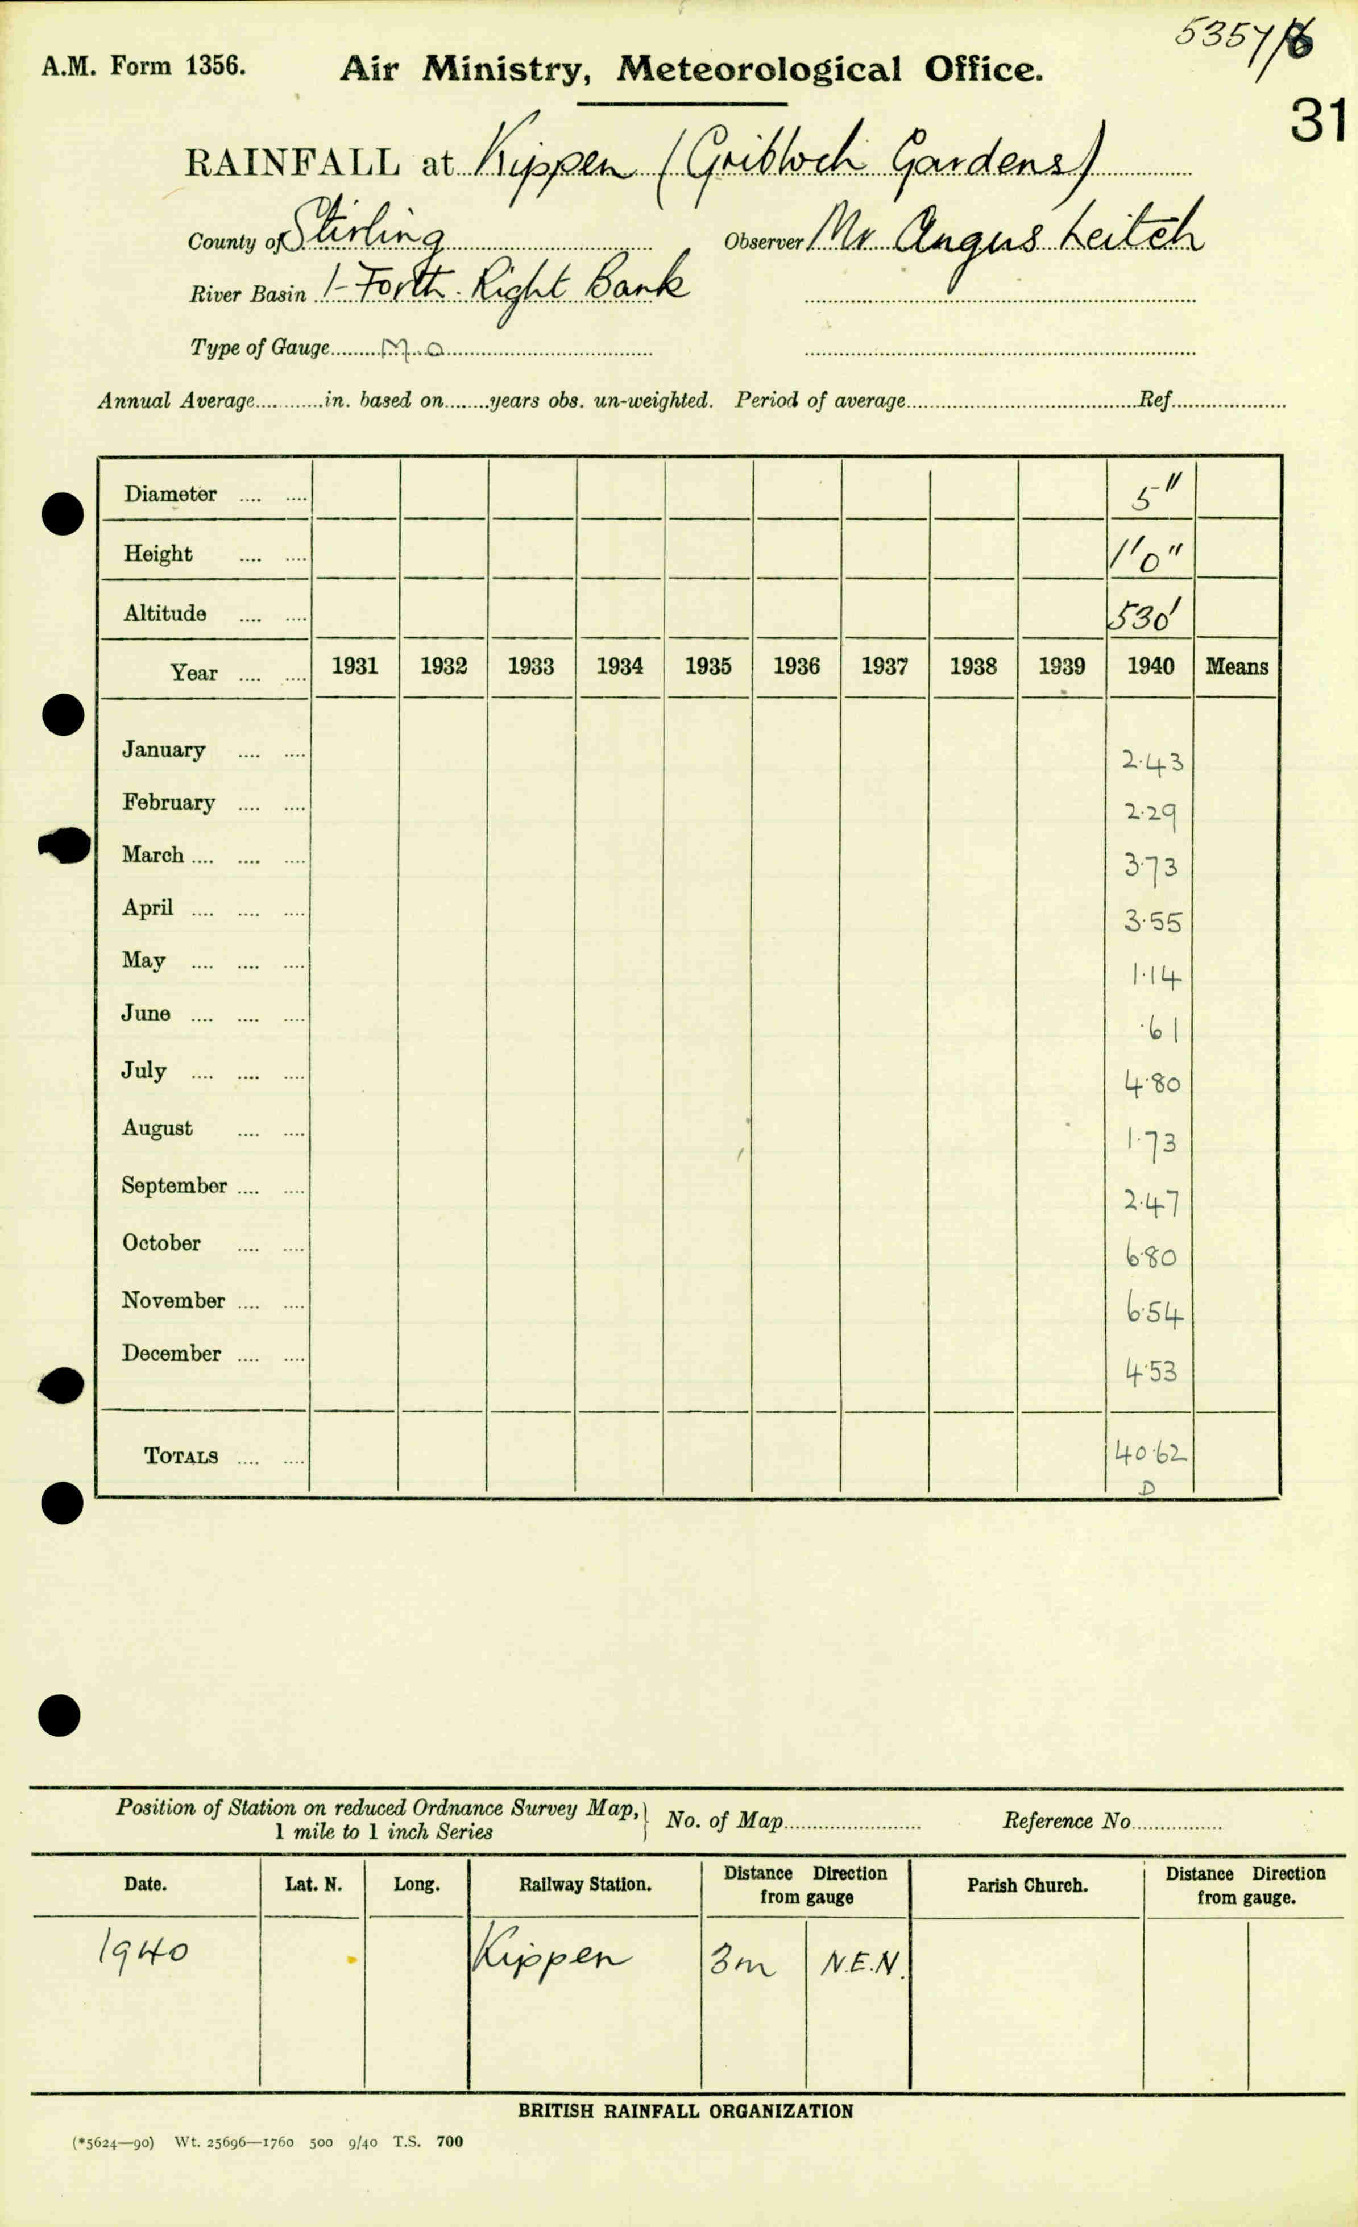 5357/8
A.M. Form 1356. Air Ministry, Meteorological Office.
31
RAINFALL at Kippen (Gribloch Gardens)
County of Stirling Observer Mr Angus Leitch
River Basin 1-Forth. Right Bank
Type of Gauge M.O
Annual Average in. based on years obs. un-weighted. Period of average Ref.
Diameter 5"
Height 1'0"
Altitude 530'
Year 1931 1932 1933 1934 1935 1936 1937 1938 1939 1940 Means
January 2.43
February 2.29
March 3.73
April 3.55
May 1.14
June .61
July 4.80
August 1.73
September 2.47
October 6.80
November 6.54
December 4.53
TOTALS 40.62
D
Position of Station on reduced Ordnance Survey Map, 1 mile to 1 inch Series } No. of Map Reference No.
Date. Lat. N. Long. Railway Station. Distance Direction from gauge Parish Church. Distance Direction from gauge.
1940 Kippen 3m N.E.N.
BRITISH RAINFALL ORGANIZATION
(*5624—90) Wt. 25696—1760 500 9/40 T.S. 700